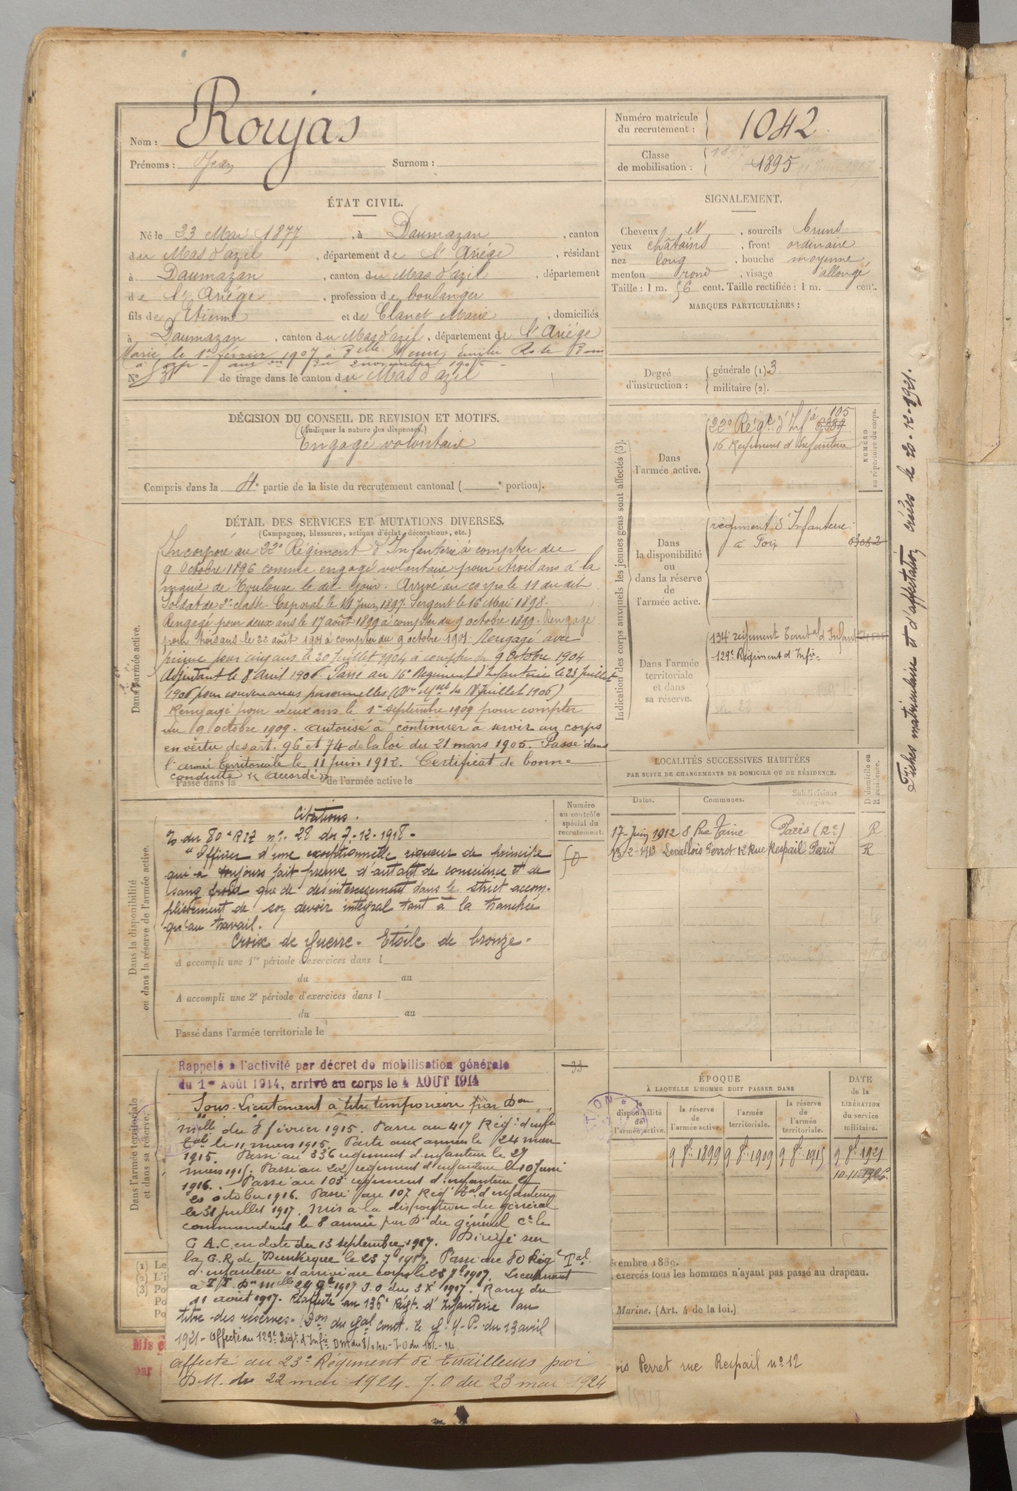 Nom : Roujas
Prénoms : Jean Surnom :
Numéro matricule du recrutement : 1042
Classe de mobilisation : 1895
ÉTAT CIVIL.
Né le 23 Mai 1877, à Daumazan, canton
du Mas d'azil, département de l'Ariége, résidant
à Daumazan, canton du Mas d'azil, département
de l'Ariége, profession de boulanger
fils de Etienne et de Clanet Marie, domiciliés
à Daumazan, canton du Mas d'azil, département de l'Ariége
Marié le 1er février 1907 à Delle
N° 31 de tirage dans le canton du Mas d'azil
SIGNALEMENT.
Cheveux et, sourcils bruns
yeux châtains, front ordinaire
nez long, bouche moyenne
menton rond, visage allongé
Taille : 1 m. 56 cent. Taille rectifiée : 1 m. cent.
MARQUES PARTICULIÈRES :
Degré d'instruction : générale (1) 3
militaire (2).
DÉCISION DU CONSEIL DE REVISION ET MOTIFS.
(Indiquer la nature des dispenses.)
Engagé volontaire
Compris dans la 4e partie de la liste du recrutement cantonal ( e portion).
DÉTAIL DES SERVICES ET MUTATIONS DIVERSES.
(Campagnes, blessures, actions d'éclat, décorations, etc.)
Dans l'armée active.
Incorporé au 22e Régiment d'Infanterie à compter du
9 Octobre 1896 comme engagé volontaire pour trois ans à la
mairie de Toulouse le dit jour. Arrivé au corps le 11 du dit
Soldat de 2e classe Caporal le 14 Juin 1897. Sergent le 16 Mai 1898.
Rengagé pour deux ans le 17 août 1899 à compter du 9 octobre 1899. Rengagé
pour trois ans le 22 août 1901 à compter du 9 octobre 1901. Rengagé avec
prime pour cinq ans le 20 Juillet 1904 à compter du 9 Octobre 1904
Adjudant le 8 Avril 1906. Passé au 16e Régiment d'Infanterie le 28 Juillet
1906 pour convenances personnelles
Rengagé pour deux ans le 1er septembre 1909 pour compter
du 9 octobre 1909. autorisé à continuer à servir au corps
en vertu des art. 96 et 74 de la loi du 21 mars 1905. Passé dans
l'armée territoriale le 11 juin 1912. Certificat de bonne
conduite "accordé"
Passé dans la de l'armée active le
Indication des corps auxquels les jeunes gens sont affectés (3).
NUMÉRO au répertoire du corps.
Dans l'armée active.
22e Régt d'Infie 105
16 Régiment d'Infanterie
Dans la disponibilité ou dans la réserve de l'armée active.
régiment d'Infanterie
à Foix
Dans l'armée territoriale et dans sa réserve.
134 régiment Territal d'Infanterie
129e Régiment d'Infie
LOCALITÉS SUCCESSIVES HABITÉES
PAR SUITE DE CHANGEMENTS DE DOMICILE OU DE RÉSIDENCE.
Dates. Communes. Subdivisions de région. D domicile ou R résidence.
17 Juin 1912 8 Rue Taine Paris (12e) R
Levallois Perret 12 Rue Raspail Paris R
Dans la disponibilité ou dans la réserve de l'armée active.
Numéro au contrôle spécial du recrutement.
Citations.
O du 80e RIT n° 28 du 7-12-1918 -
"Officier d'une exceptionnelle rigueur de principe
qui a toujours fait preuve d'autant de conscience et de
sang froid que de désintéressement dans le strict accom-
plissement de son devoir intégral tant à la tranchée
qu'au travail.
Croix de Guerre - Etoile de bronze -
A accompli une 1re période d'exercices dans l
du au
A accompli une 2e période d'exercices dans l
du au
Passé dans l'armée territoriale le
Dans l'armée territoriale et dans sa réserve.
Rappelé à l'activité par décret de mobilisation générale
du 1er Août 1914, arrivé au corps le 4 AOUT 1914
Sous-Lieutenant à titre temporaire par Don
mielle du 8 février 1915. Passé au 417 Régt d'infie
le 11 mars 1915. Parti aux armées le 24 mars
1915. Passé au 336 régiment d'infanterie le 27
mars 1915. Passé au 202 régiment d'infanterie le 10 Juin
1916. Passé au 103 régiment d'infanterie le
20 octobre 1916. Passé au 107 Régt Tal d'infanterie
le 31 juillet 1917. Mis à la disposition du général
commandant la 8 armée par Don du général Ct le
G.A.C. en date du 13 septembre 1917. Dirigé sur
la G.R. de Dunkerque le 23 7bre 1917. Passé au 80 Régt Tal
d'infanterie et arrivé au corps le 28 7bre 1917. Lieutenant
à T.T. Don mielle 29 9bre 1917 J.O du 3 X 1917. Rang du
11 août 1917. Réaffecté au 136e Régt. d'Infanterie au
titre des réserves. Don du Gal Comt. le Gt M. P. du 13 avril
1921 - Affecté au 129e Régt. d'Infie
affecté au 23e Régiment de Tirailleurs par
D.M. du 22 mai 1924. J.O du 23 mai 1924
ÉPOQUE
À LAQUELLE L'HOMME DOIT PASSER DANS
DATE DE LA LIBÉRATION du service militaire.
disponibilité de l'armée active. la réserve de l'armée active. l'armée territoriale. la réserve de l'armée territoriale.
9 8bre 1899 9 8bre 1909 9 8bre 1915 9 8bre 1921
exercés tous les hommes n'ayant pas passé au drapeau.
Marine. (Art. 4 de la loi.)
ois Perret rue Raspail n° 12
Fiches matriculaire et d'affectation créées le 20-12-1921.